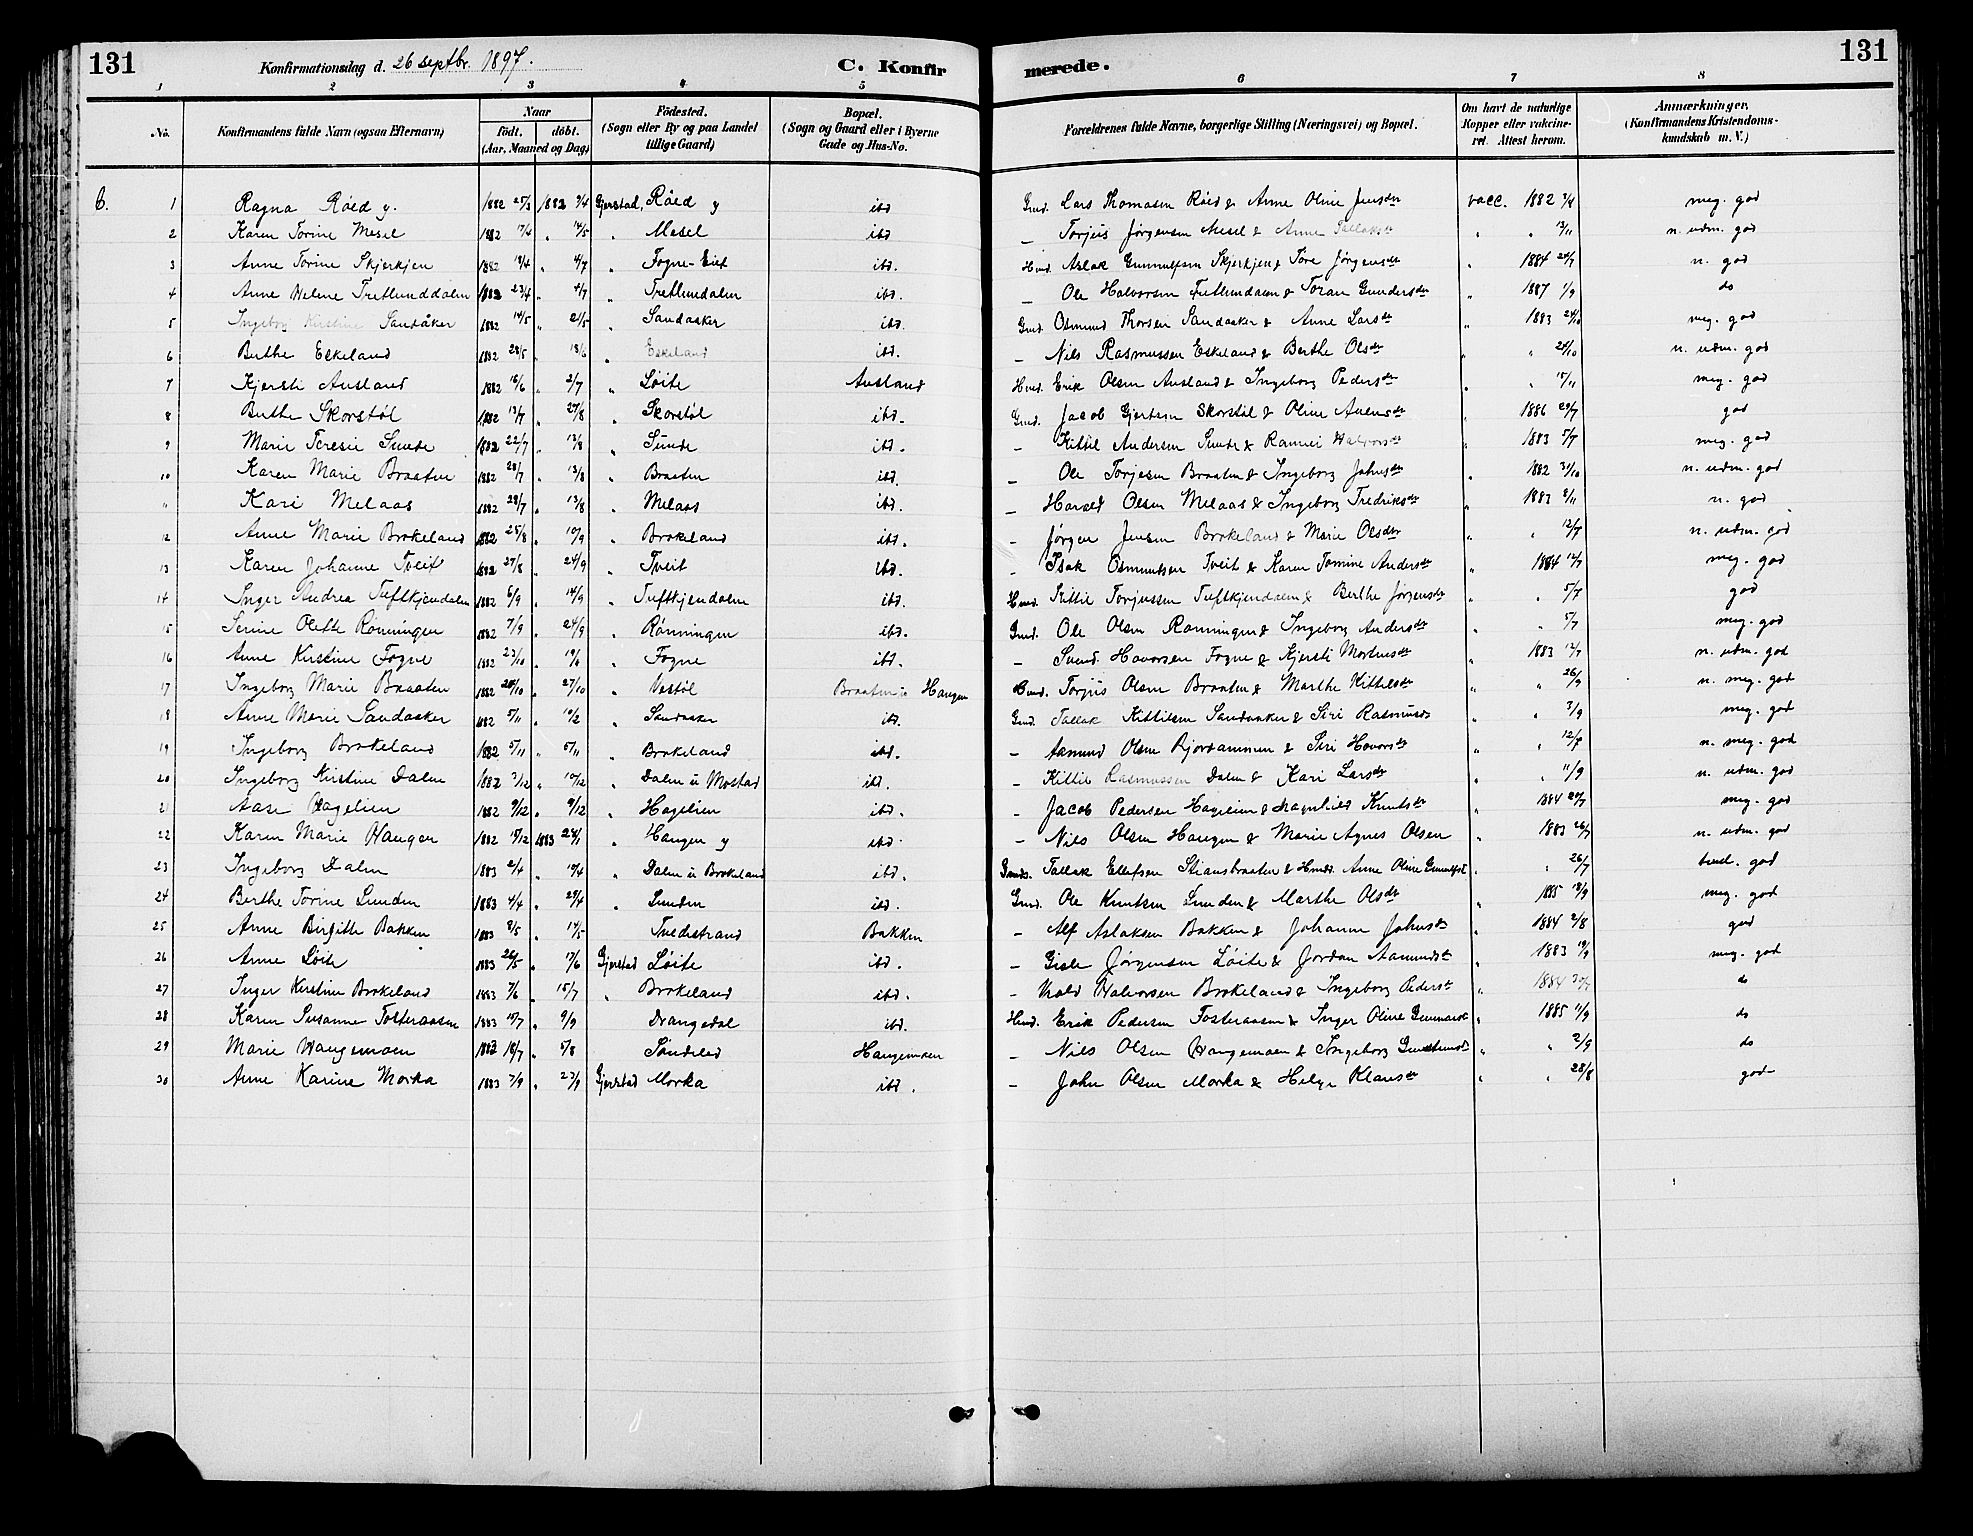 131
Konfirmationsdag d. 26 septbr. 1897.
C. Konfirmerede.
131
1 2 3 4 5 6 7 8
No.
Konfirmandens fulde Navn (ogsaa Efternavn)
Naar
født. døbt.
(Aar, Maaned og Dag)
Födested.
(Sogn eller By og paa Landet
tillige Gaard)
Bopæl.
(Sogn og Gaard eller i Byerne
Gade og Hus-No.
Forældrenes fulde Navne, borgerlige Stilling (Næringsvei) og Bopæl.
Om havt de naturlige
Kopper eller vakcine-
ret. Attest herom.
Anmærkninger.
(Konfirmandens Kristendoms-
kundskab m. V.)
1 Ragna Røed y. 1882 25/3 1882 9/4 Gjerstad, Røed y ibd Gmd. Lars Thomasen Røed & Anne Oline Jensdtr vacc. 1882 meg. god
2 Karen Torine Mesel 1882 17/4 " 14/5 " Mesel ibd — Torjus Jørgensen Mesel & Anne Tallaksdtr " " 13/11 n. udm. god
3 Anne Torine Skjerkjen 1882 18/4 " 4/7 " Fogne-Eiet ibd. Hmd. Aslak Gunnulfsen Skjerkjen & Tore Jørgensdtr " 1884 24/7 n. god
4 Anne Helene Tretlunddalen 1882 23/4 " 4/7 " Tretlundalen ibd. — Ole Halvorsen Tretlundalen & Toran Gundersdtr " 1887 1/9 do
5 Ingeborg Kirstine Sandåker 1882 14/5 " 21/5 " Sandaaker ibd. Gmd. Osmund Thorsen Sandaaker & Anne Larsdtr " 1883 24/10 meg. god
6 Berthe Eskeland 1882 28/5 " 18/6 " Eskeland ibd. — Nils Rasmussen Eskeland & Berthe Olsdtr " " 24/10 n. udm. god
7 Kjersti Ausland 1882 16/6 " 2/7 " Løite Ausland Hmd. Erik Olsen Ausland & Ingeborg Pedersdtr " " 15/11 meg. god
8 Berthe Skorstøl 1882 13/7 " 27/8 " Skorstøl ibd. Gmd. Jacob Gjertsen Skorstøl & Oline Auensdtr " 1886 29/7 god
9 Marie Teresie Sunde 1882 22/7 " 13/8 " Sunde ibd. — Kittil Andersen Sunde & Rannei Halvorsdtr " 1883 5/7 meg. god
10 Karen Marie Braaten 1882 28/7 " 13/8 " Braaten ibd. — Ole Torjesen Braaten & Ingeborg Johnsdtr " 1882 31/10 n. udm. god
" Kari Melaas 1882 29/7 " 13/8 " Melaas ibd. — Harald Olsen Melaas & Ingeborg Fredriksdtr " 1883 8/11 n. god
12 Anne Marie Brokeland 1882 25/8 " 10/9 " Brokeland ibd. — Jørgen Jensen Brokeland & Marie Olsdtr " " 12/7 n. udm. god
13 Karen Johanne Tveit 1882 27/8 " 24/9 " Tveit ibd. — Isak Osmundsen Tveit & Karen Tomine Andersdtr " 1884 12/7 meg. god
14 Inger Andrea Tuftkjendalen 1882 6/9 " 14/9 " Tuftkjendalen ibd. Hmd. Kittil Torjussen Tuftkjendalen & Berthe Jørgensdtr " " 5/7 god
15 Serine Olette Rønningen 1882 7/9 " 24/9 " Rønningen ibd. Gmd. Ole Olsen Rønningen & Ingeborg Andersdtr " " 5/7 meg. god
16 Anne Kirstine Fogne 1882 23/10 " " Fogne ibd. — Svend Hovorsen Fogne & Kjersti Mortensdtr " 1883 12/7 n. udm. god
17 Ingeborg Marie Braaten 1882 24/10 " 27/10 " Vestøl Braaten Haugen Hmd. Torjus Olsen Braaten & Marthe Kittilsdtr " " 26/9 n. meg. god
18 Anne Marie Sandaaker 1882 5/11 " 10/2 " Sandaaker ibd. Gmd. Tallak Kittilsen Sandaaker & Siri Rasmusd " " 3/9 meg. god
19 Ingeborg Brokeland 1882 5/11 " 5/11 " Brokeland ibd. — Asmund Olsen & Siri Hovorsdtr " " n. meg. god
20 Ingeborg Kirstine Dalen 1882 3/12 " 10/12 " Dalen u Mostad ibd. — Kittil Rasmussen Dalen & Kari Larsdtr " " 11/9 n. udm. god
21 Aase Hagelien 1882 9/12 " 9/12 " Hagelien ibd. — Jacob Pedersen Hagelien & Magnhild Knutsdtr " 1884 20/7 meg. god
22 Karen Marie Haugen 1882 19/12 1883 24/1 " Haugen y ibd. — Nils Olsen Haugen & Marie Agnes Olsen " 1883 26/7 n. udm. god
23 Ingeborg Dalen 1883 2/4 " 10/4 " Dalen u Brokeland ibd. Gmds. Tallak Ellefsen Stiansbraaten & Hmds. Anne Oline Gunulfsd " " 26/7 god
24 Berthe Torine Lunden 1883 4/4 " 29/4 " Lunden ibd. Gmd. Ole Knutsen Lunden & Marthe Olsdtr " 1885 18/9 meg. god
25 Anne Birgitte Bakken 1883 8/5 " 14/5 Tvedestrand Bakken — Alf Aslaksen Bakken & Johanne Johnsdtr " 1884 2/8 god
26 Anne Løite 1883 26/5 " 17/6 Gjerstad Løite ibd. — Gisle Jørgensen Løite & Jordan Aamundsd " 1883 19/9 meg. god
27 Inger Kirstine Brokeland 1883 7/6 " 15/7 " Brokeland ibd. — Halvorsen Brokeland & Ingeborg Pedersd " 1884 do
28 Karen Susanne Fosteraasen 1883 15/7 " 9/9 Drangedal ibd. Hmd. Erik Pedersen Fosteraasen & Inger Oline " 1885 11/9 do
29 Marie Haugemoen 1883 18/7 " 5/8 Søndeled Haugemoen — Nils Olsen Haugemoen & Ingeborg " " 2/9 do
30 Anne Karine Morka 1883 7/9 " 23/9 Gjerstad Morka ibd. — John Olsen Morka & Helge Klausdtr " " 28/8 god